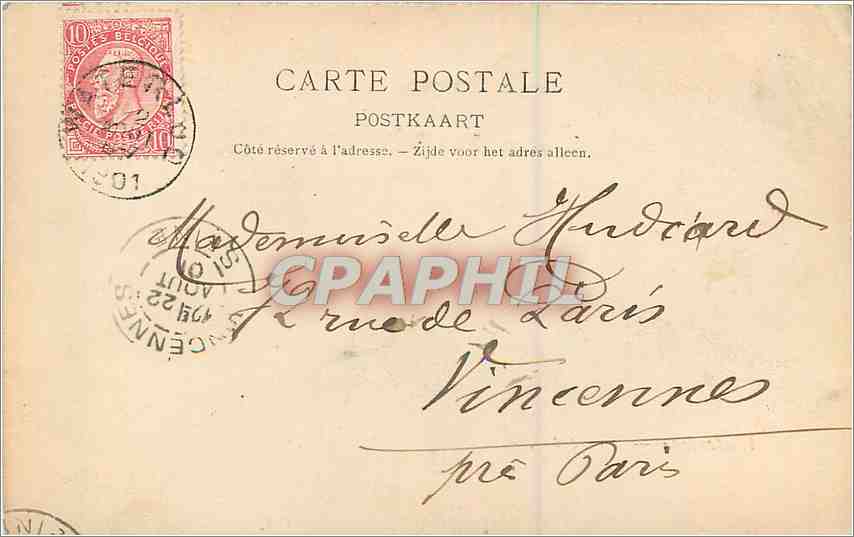 10
POSTES BELGIQUE
10
1901
CARTE POSTALE
POSTKAART
Côté réservé à l'adresse. — Zijde voor het adres alleen.
Mademoiselle Hudiard
rue de Paris
Vincennes
près Paris
CPAPHIL
22
AOUT
01
VINCENNES